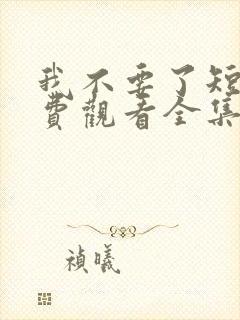 我不要了短
費觀看全集
禎曦